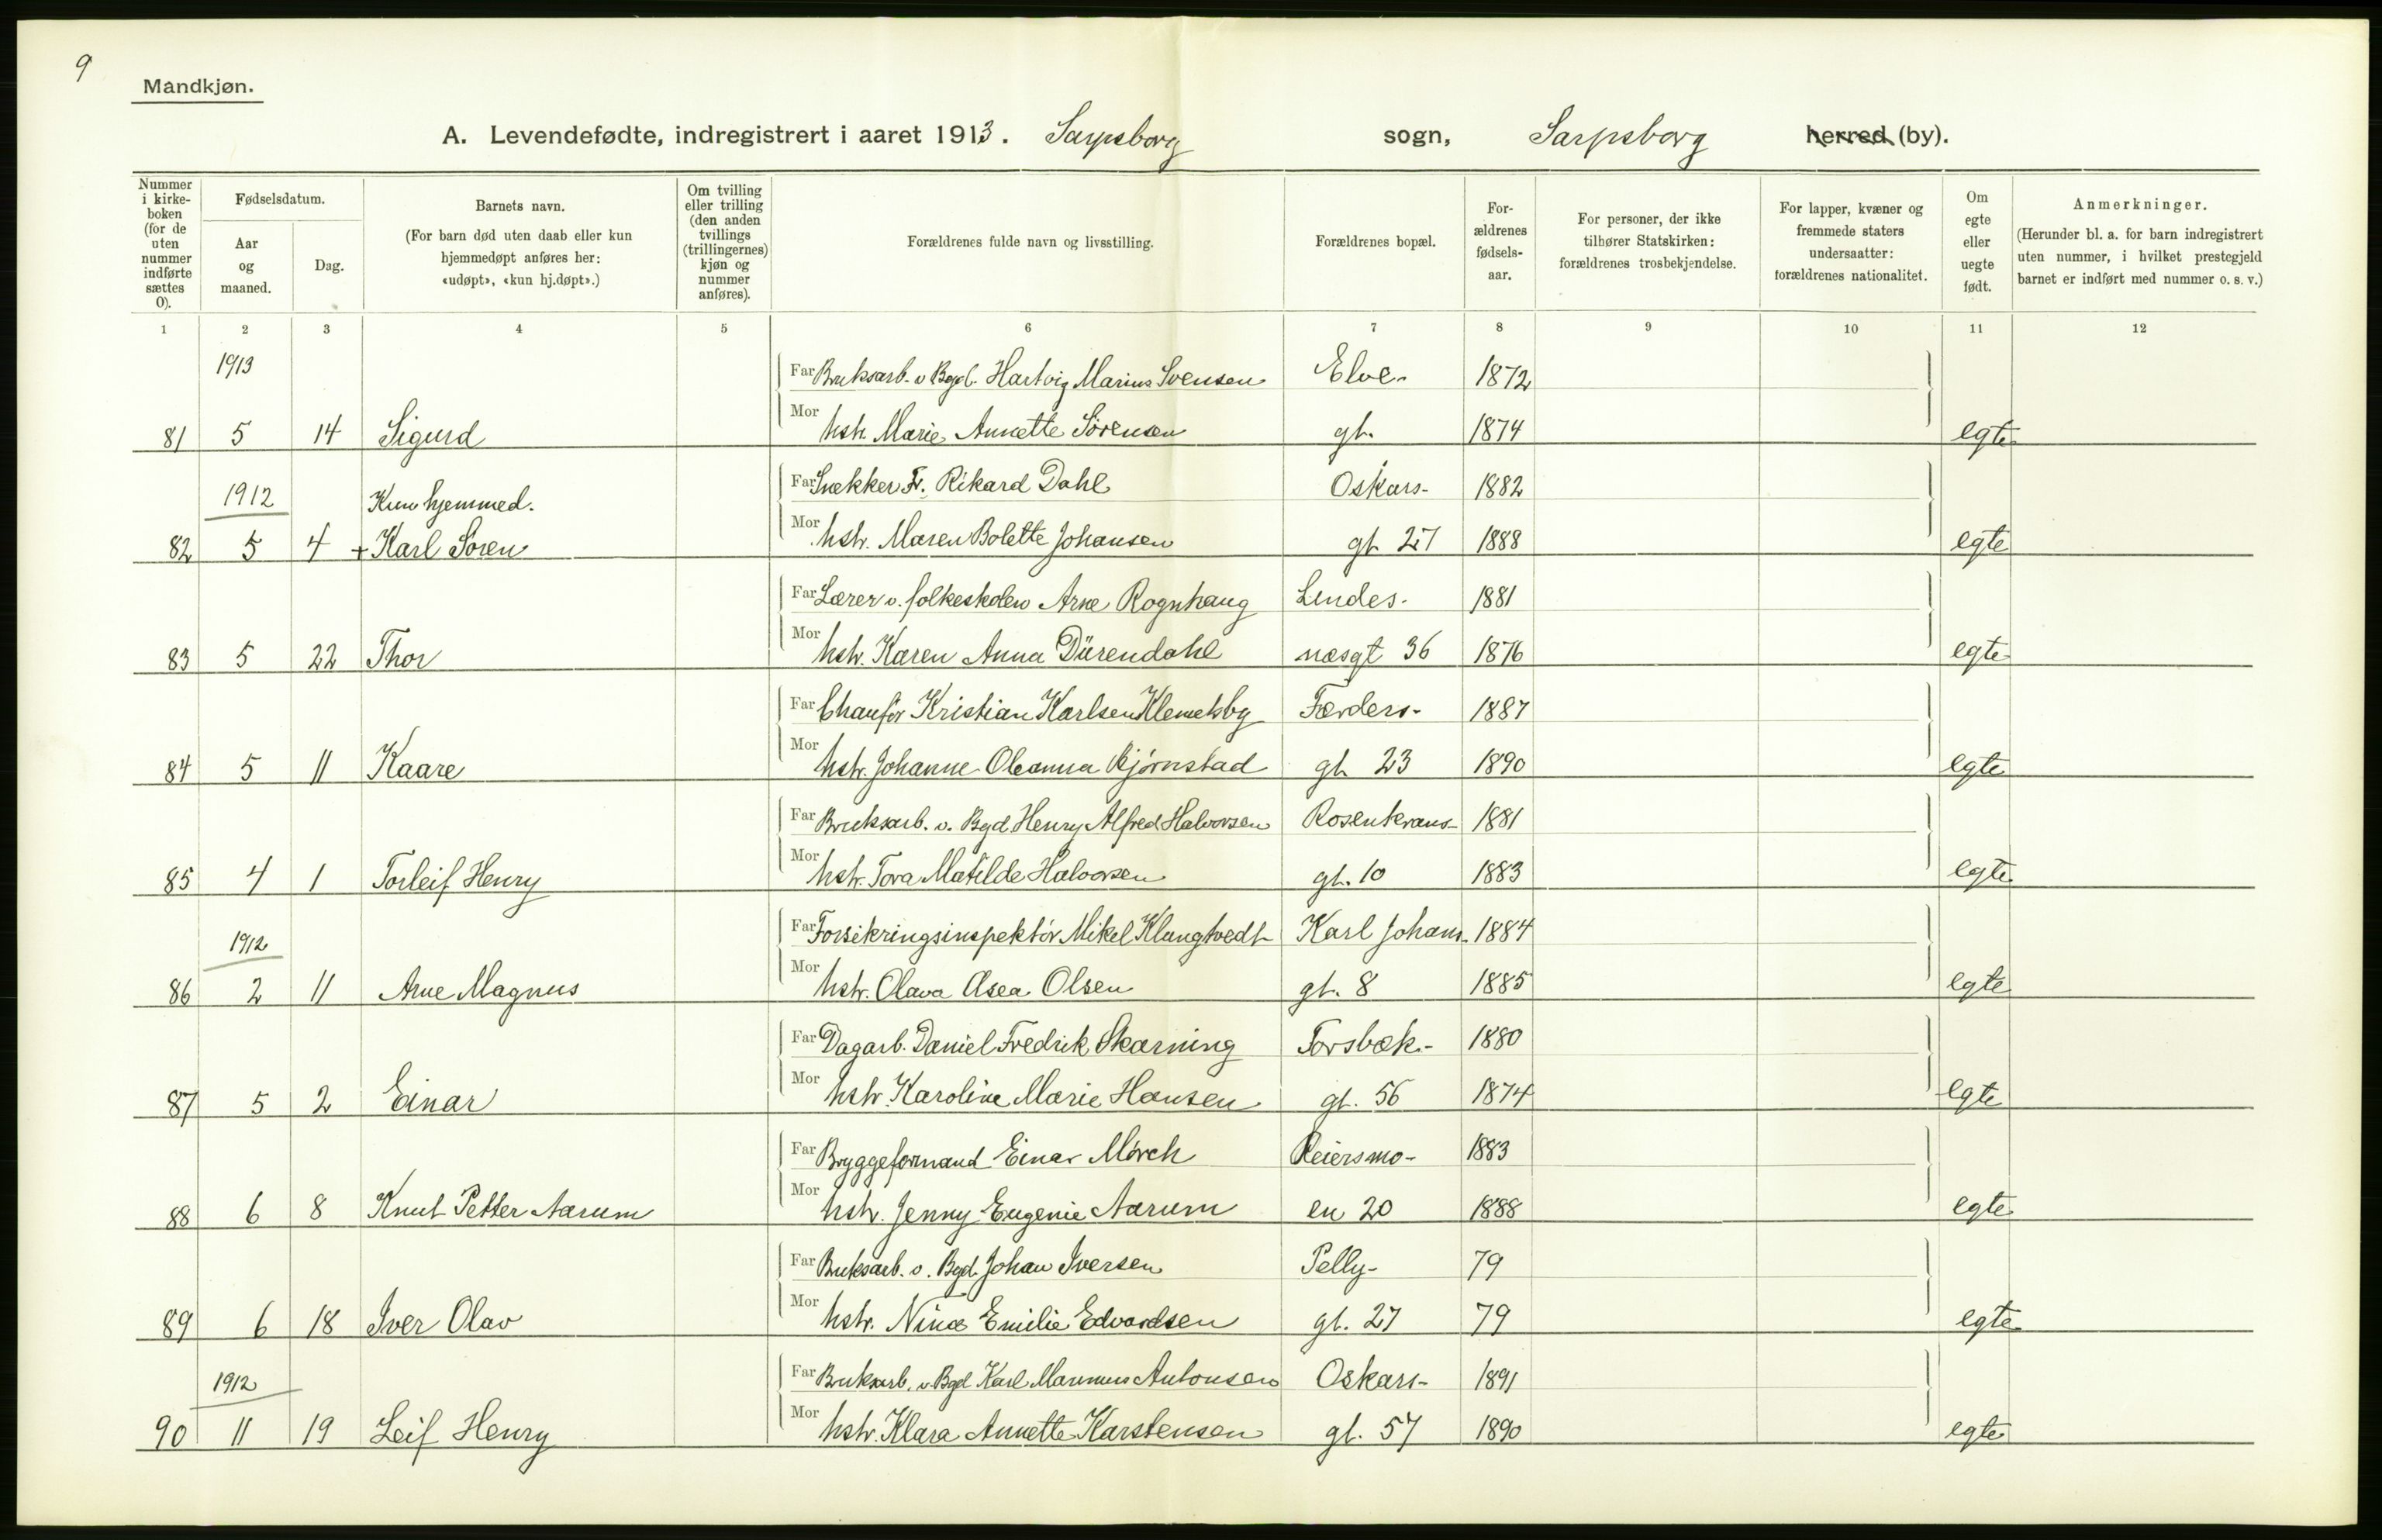 9
Mandkjøn.
A. Levendefødte, indregistrert i aaret 1913. Sarpsborg sogn, Sarpsborg herred (by).
Nummer i kirke-boken (for de uten nummer indførte sættes 0).
Fødselsdatum.
Aar og maaned.
Dag.
Barnets navn.
(For barn død uten daab eller kun hjemmedøpt anføres her: «udøpt», «kun hj.døpt».)
Om tvilling eller trilling (den anden tvillings (trillingernes) kjøn og nummer anføres).
Forældrenes fulde navn og livsstilling.
Forældrenes bopæl.
For-ældrenes fødsels-aar.
For personer, der ikke tilhører Statskirken: forældrenes trosbekjendelse.
For lapper, kvæner og fremmede staters undersaatter: forældrenes nationalitet.
Om egte eller uegte født.
Anmerkninger.
(Herunder bl. a. for barn indregistrert uten nummer, i hvilket prestegjeld barnet er indført med nummer o. s. v.)
1 2 3 4 5 6 7 8 9 10 11 12
1913 Far Bruksarb. v Bgd. Hartvig Marius Svensen Elve- 1872
81 5 14 Sigurd Mor hstr. Marie Annette Sørensen gt. 1874 egte
1912 Kun hjemmed. Far Snekker Fr. Rikard Dahl Oskars- 1882
82 5 4 + Karl Soren Mor hstr. Maren Bolette Johansen gt 27 1888 egte
Far Lærer v. folkeskolen Arne Rognhaug Lindes- 1881
83 5 22 Thor Mor hstr. Karen Anna Dürendahl næsgt 36 1876 egte
Far Chauför Kristian Karlsen Klemetsby Færders- 1887
84 5 11 Kaare Mor hstr. Johanne Oleanna Bjørnstad gt. 23 1890 egte
Far Bruksarb. v. Bgd Henry Alfred Halvorsen Rosenkrans- 1881
85 4 1 Torleif Henry Mor hstr. Tora Matilde Halvorsen gt. 10 1883 egte
1912 Far Forsikringsinspektör Mikel Klungtvedt Karl Johans- 1884
86 2 11 Arne Magnus Mor hstr. Olava Asea Olsen gt. 8 1885 egte
Far Dagarb. Daniel Fredrik Skarning Torsbæk- 1880
87 5 2 Einar Mor hstr. Karoline Marie Hansen gt. 56 1874 egte
Far Bryggeformand Einar Mørch Reiersmo- 1883
88 6 8 Knut Petter Aarum Mor hstr. Jenny Eugenie Aarum en 20 1888 egte
Far Bruksarb. v. Bgd. Johan Iversen Pelly- 79
89 6 18 Iver Olav Mor hstr. Nina Emilie Edvardsen gt. 27 79 egte
1912 Far Bruksarb. v. Bgd Karl Marinius Antonsen Oskars- 1891
90 11 19 Leif Henry Mor hstr. Klara Annette Karstensen gt. 57 1890 egte